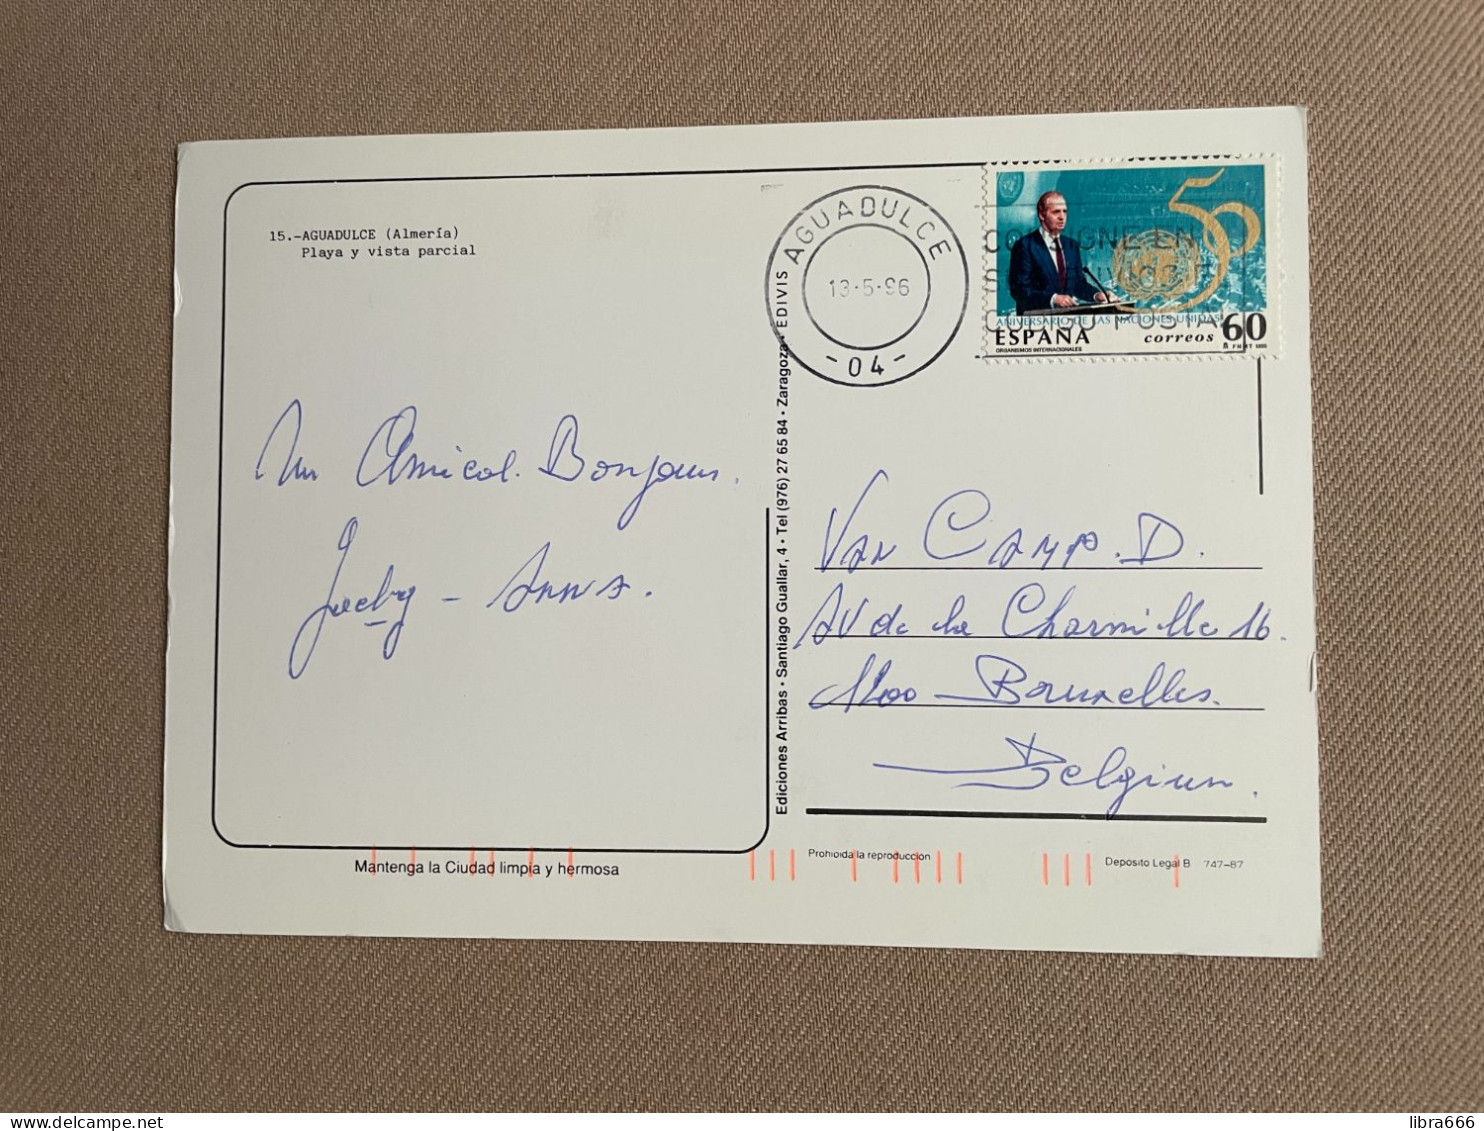 15.-AGUADULCE (Almería)
Playa y vista parcial
Un Amical Bonjour.
Jacky - Anna.
Mantenga la Ciudad limpia y hermosa
Ediciones Arribas · Santiago Guallar, 4 · Tel (976) 27 65 84 · Zaragoza · EDIVIS
AGUADULCE
13-5-96
- 04 -
CONSIGNE EN
SUS ENVIOS EL
CODIGO POSTAL
50
ANIVERSARIO DE LAS NACIONES UNIDAS
ESPAÑA correos 60
ORGANISMOS INTERNACIONALES
Van Camp. D.
AV de la Charmille 16.
1200 - Bruxelles.
Belgium.
Prohibida la reproduccion
Deposito Legal B 747-87
libra666